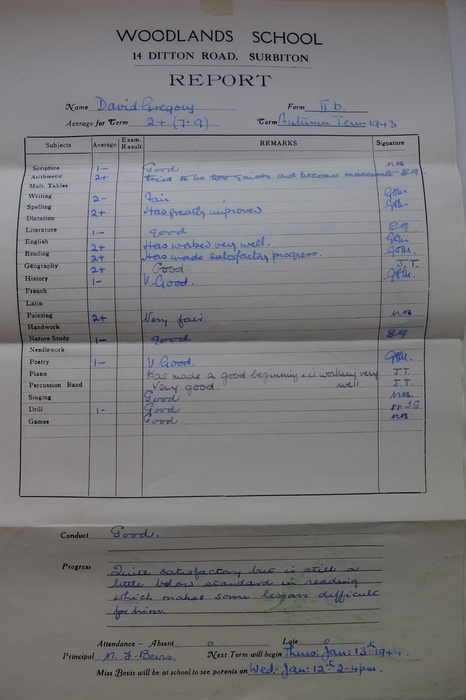 WOODLANDS SCHOOL
14 DITTON ROAD, SURBITON
REPORT
Name David Gregory Form II b.
Average for Term 2+ (7.9) Term Autumn Term 1943
Subjects Average Exam. Result. REMARKS Signature
Scripture 1- Good M.B.
Arithmetic 2+ tries to be too quick and becomes inaccurate EG
Mult. Tables
Writing 2- Fair
Spelling 2+ Has greatly improved
Dictation
Literature 1- good EG
English 2+ Has worked very well.
Reading 2+ Has made satisfactory progress.
Geography 2+ Good J.T.
History 1- V. Good.
French
Latin
Painting 2+ Very fair M.B
Handwork
Nature Study 1- good EG
Needlework
Poetry 1- V Good.
Piano Has made a good beginning & is working very well J.T.
Percussion Band Very good. J.T
Singing Good M.B.
Drill 1- Good
Games Good M.B
Conduct Good.
Progress Quite satisfactory but is still a
little below standard in reading
which makes some lessons difficult
for him.
Attendance – Absent 0 Late 0
Principal M. J. Bevis Next Term will begin Thurs: Jan: 13th 1944.
Miss Bevis will be at school to see parents on Wed: Jan: 12th 2-4pm.